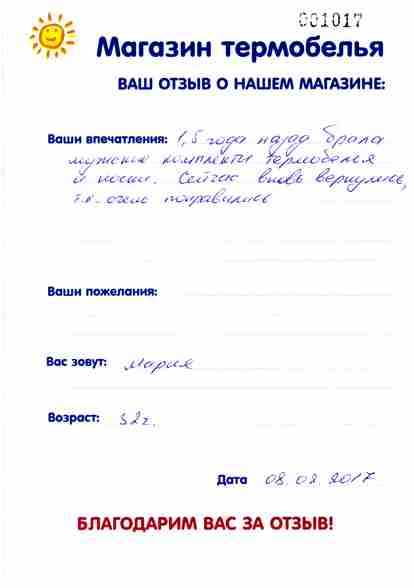 001017
Магазин термобелья
ВАШ ОТЗЫВ О НАШЕМ МАГАЗИНЕ:
Ваши впечатления: 1,5 года назад брала
мужские комплекты термобелья
и носки. Сейчас вновь вернулись,
т.к. очень понравились
Ваши пожелания:
Вас зовут: Мария
Возраст: 32г.
Дата 08.02.2017
БЛАГОДАРИМ ВАС ЗА ОТЗЫВ!